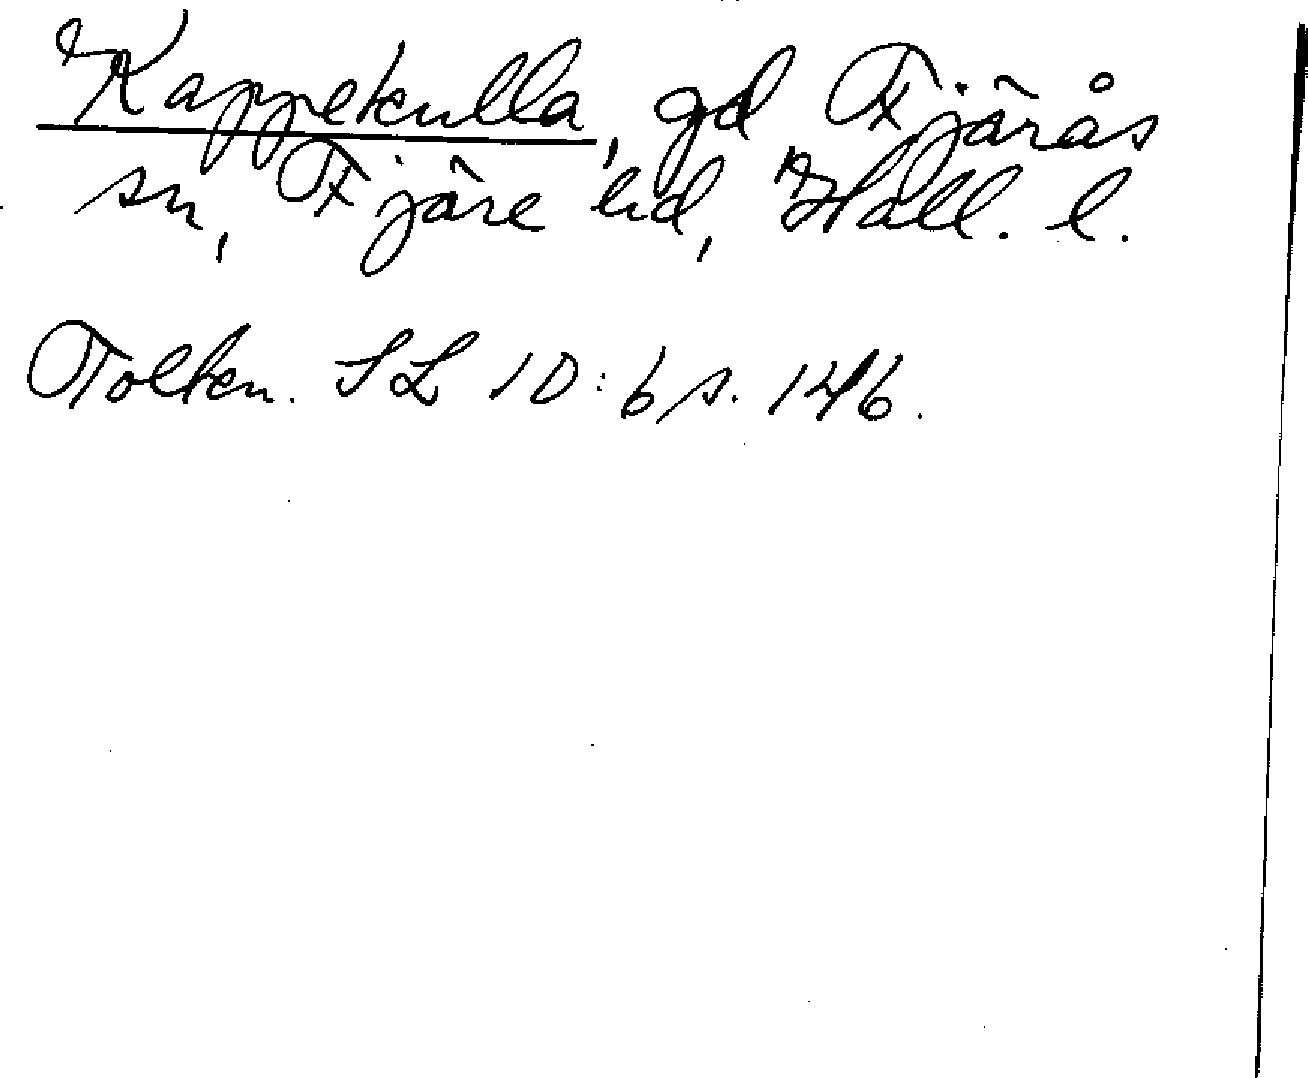 Kappekulla, gd Fjärås
sn, Fjäre hd, Hall. l.
Tolken. SL 10:6 s. 146.